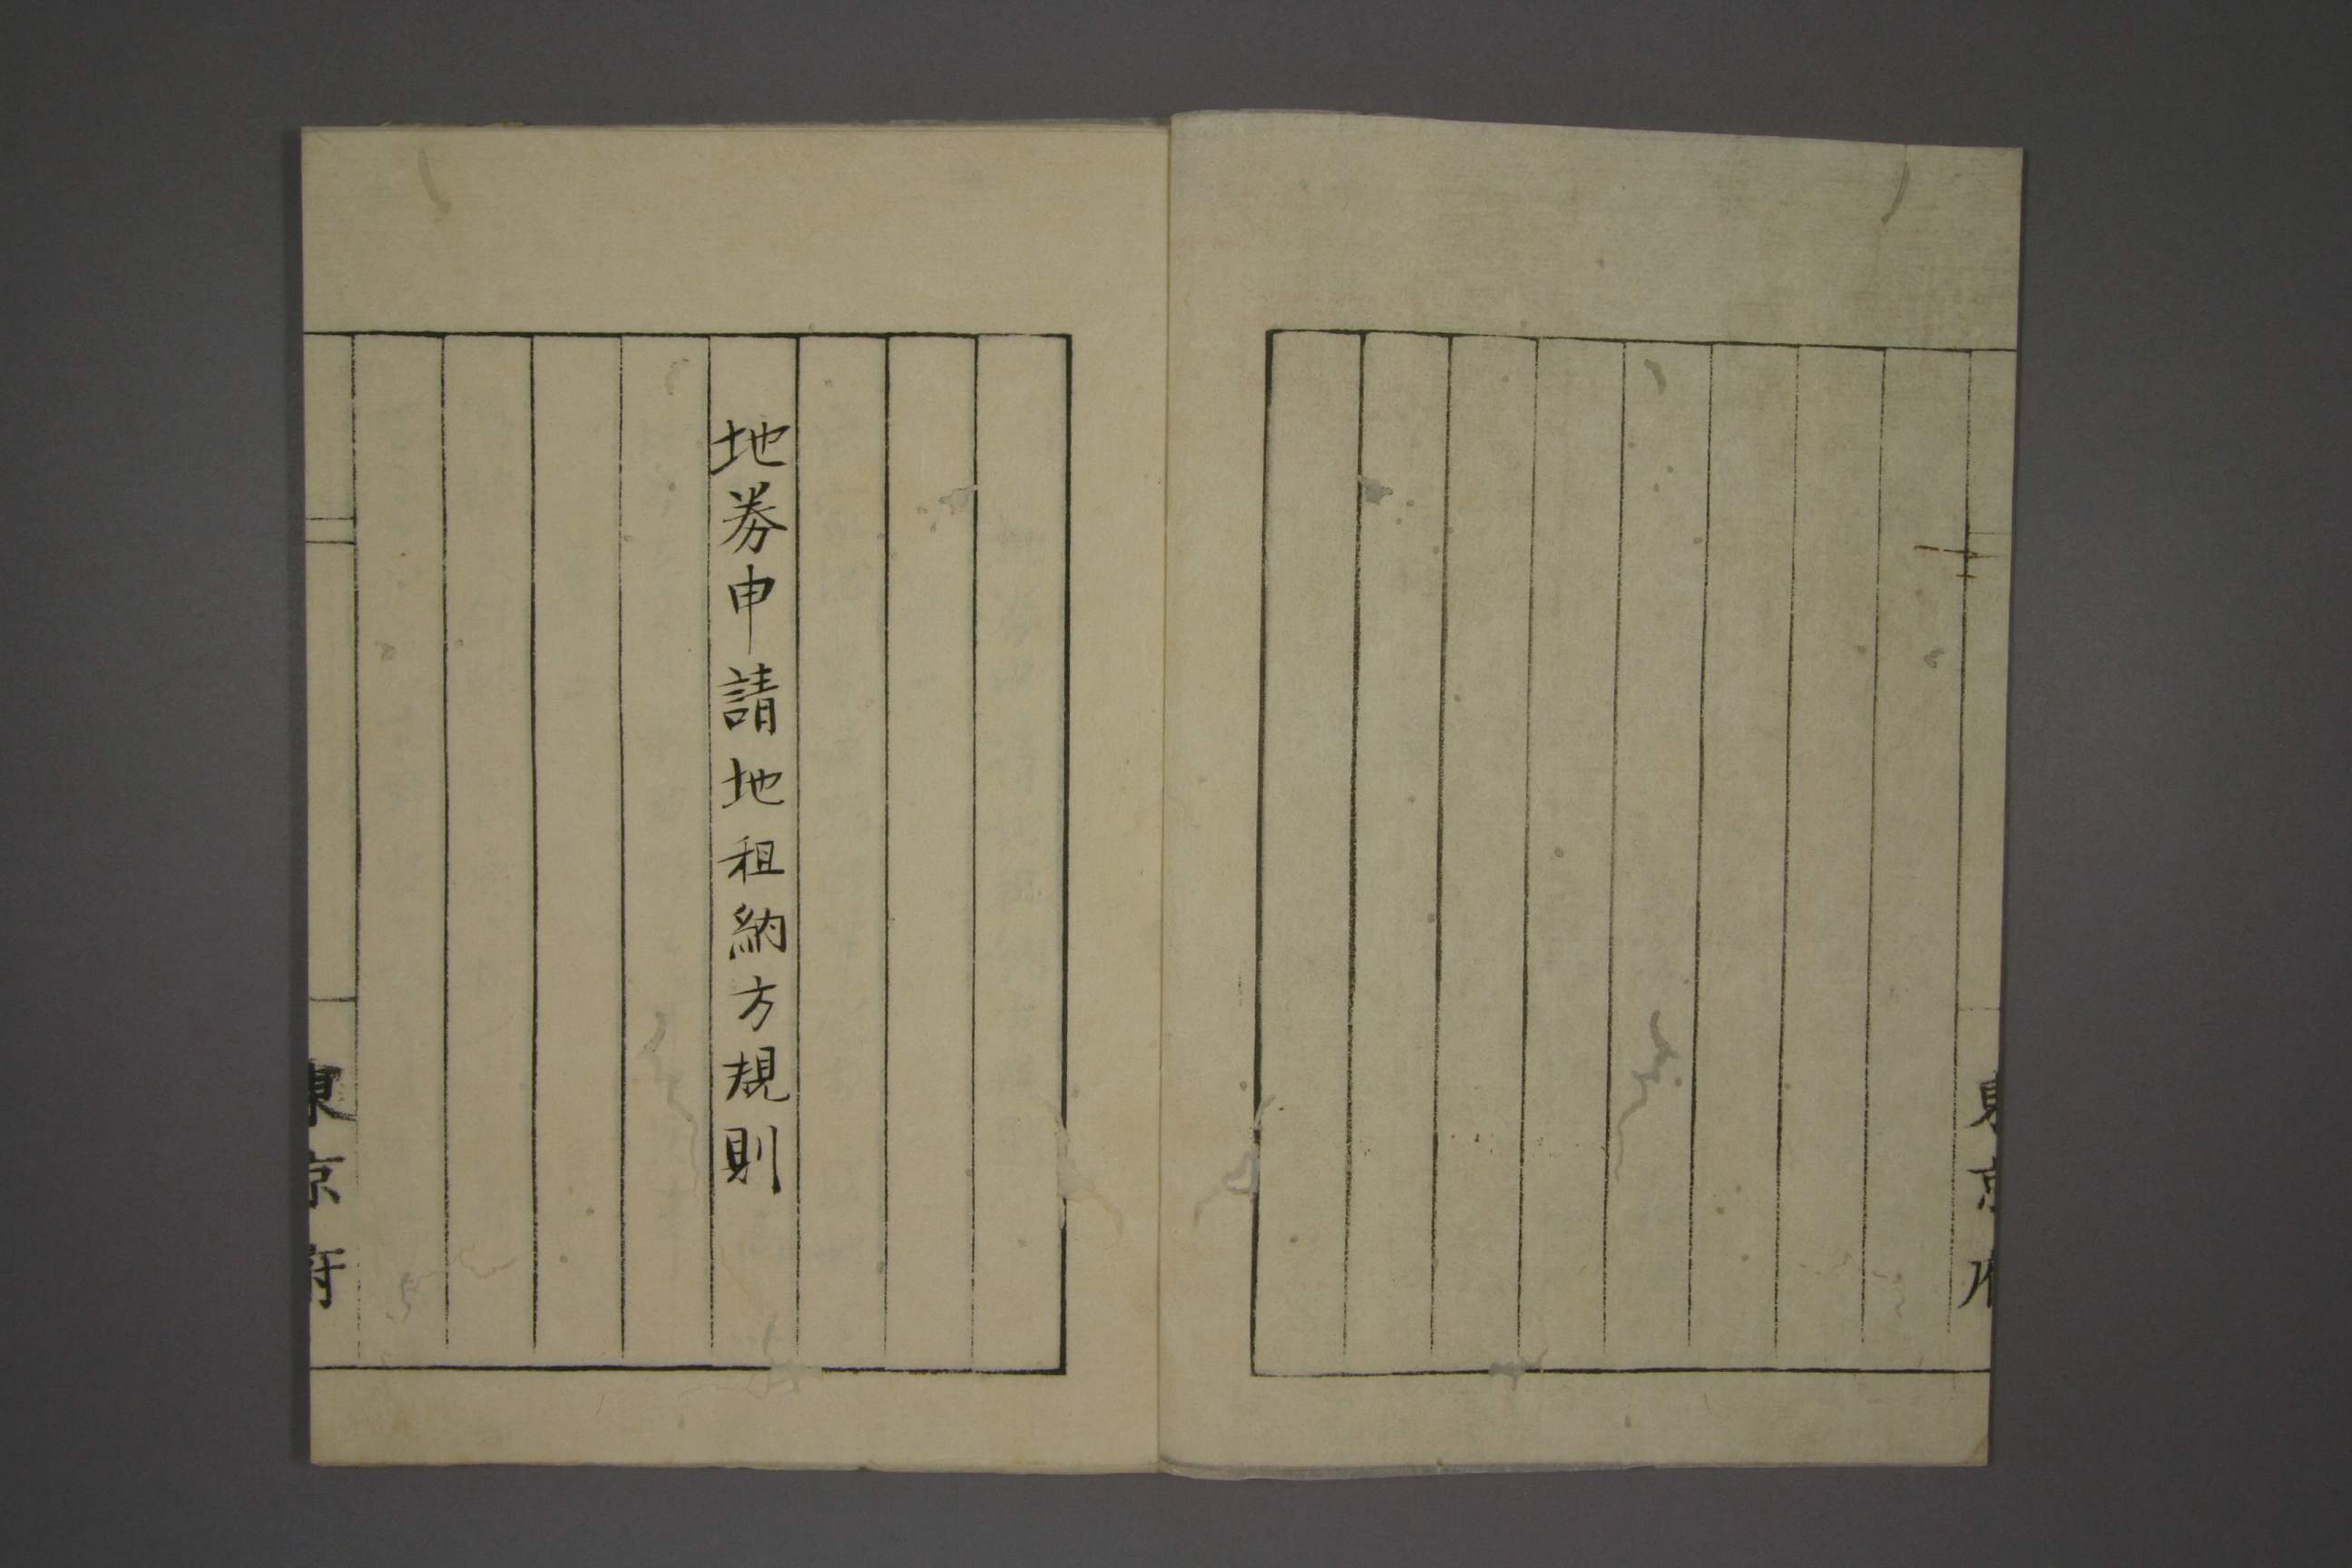 東京府
地券申請地租納方規則
東京府